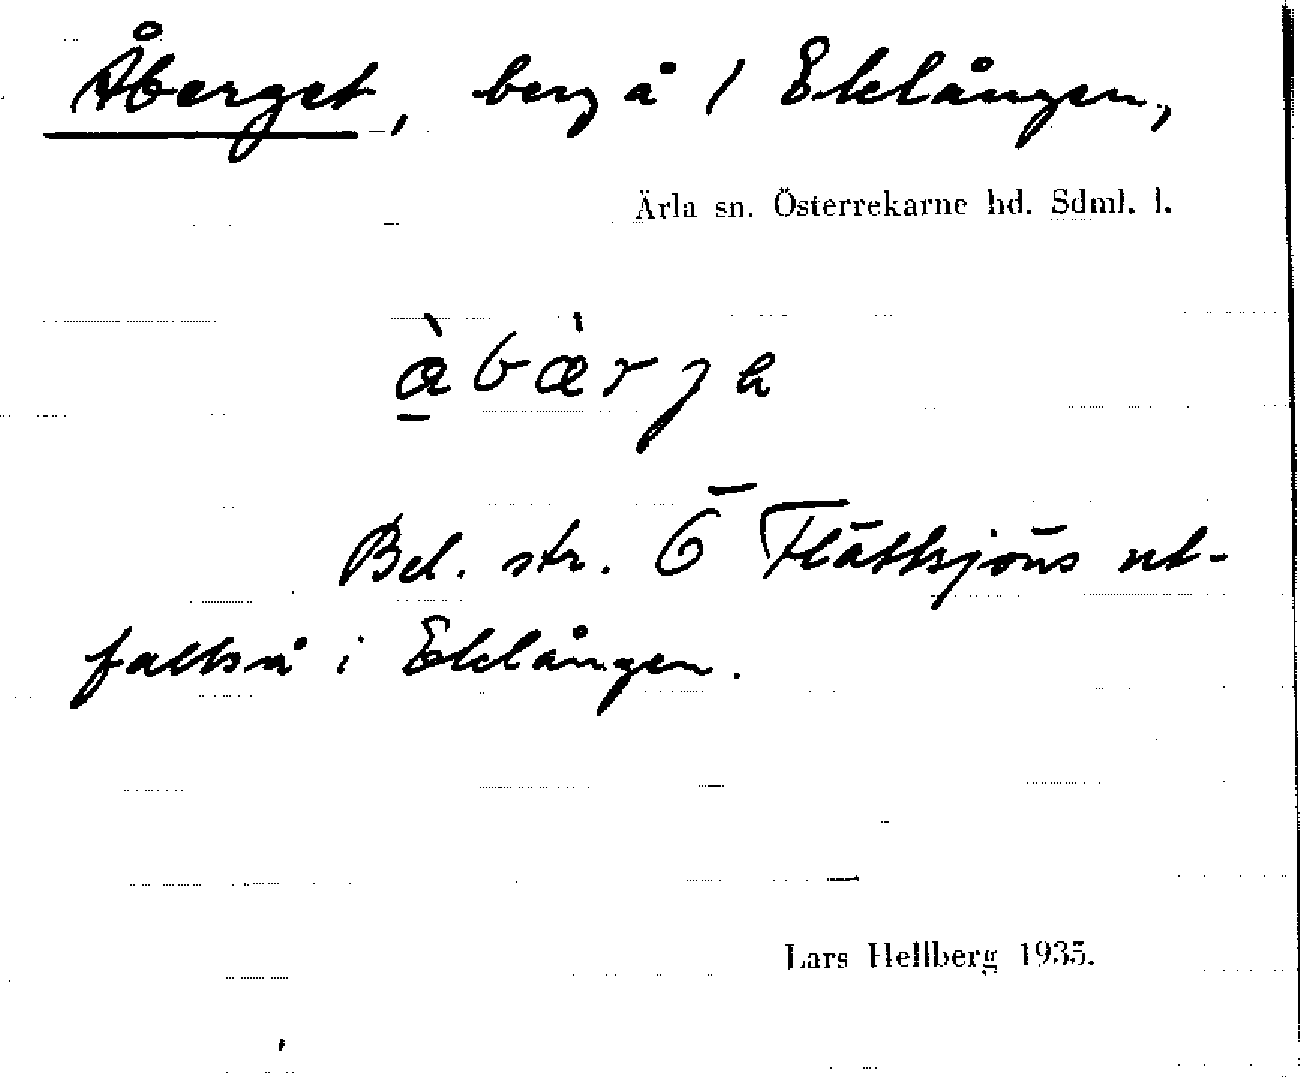 Åberget, berg å / Eklången,
Ärla sn. Österrekarne hd. Sdml. l.
Bel. str. Ö Flätsjöns ut-
fallså i Eklången.
Lars Hellberg 1935.